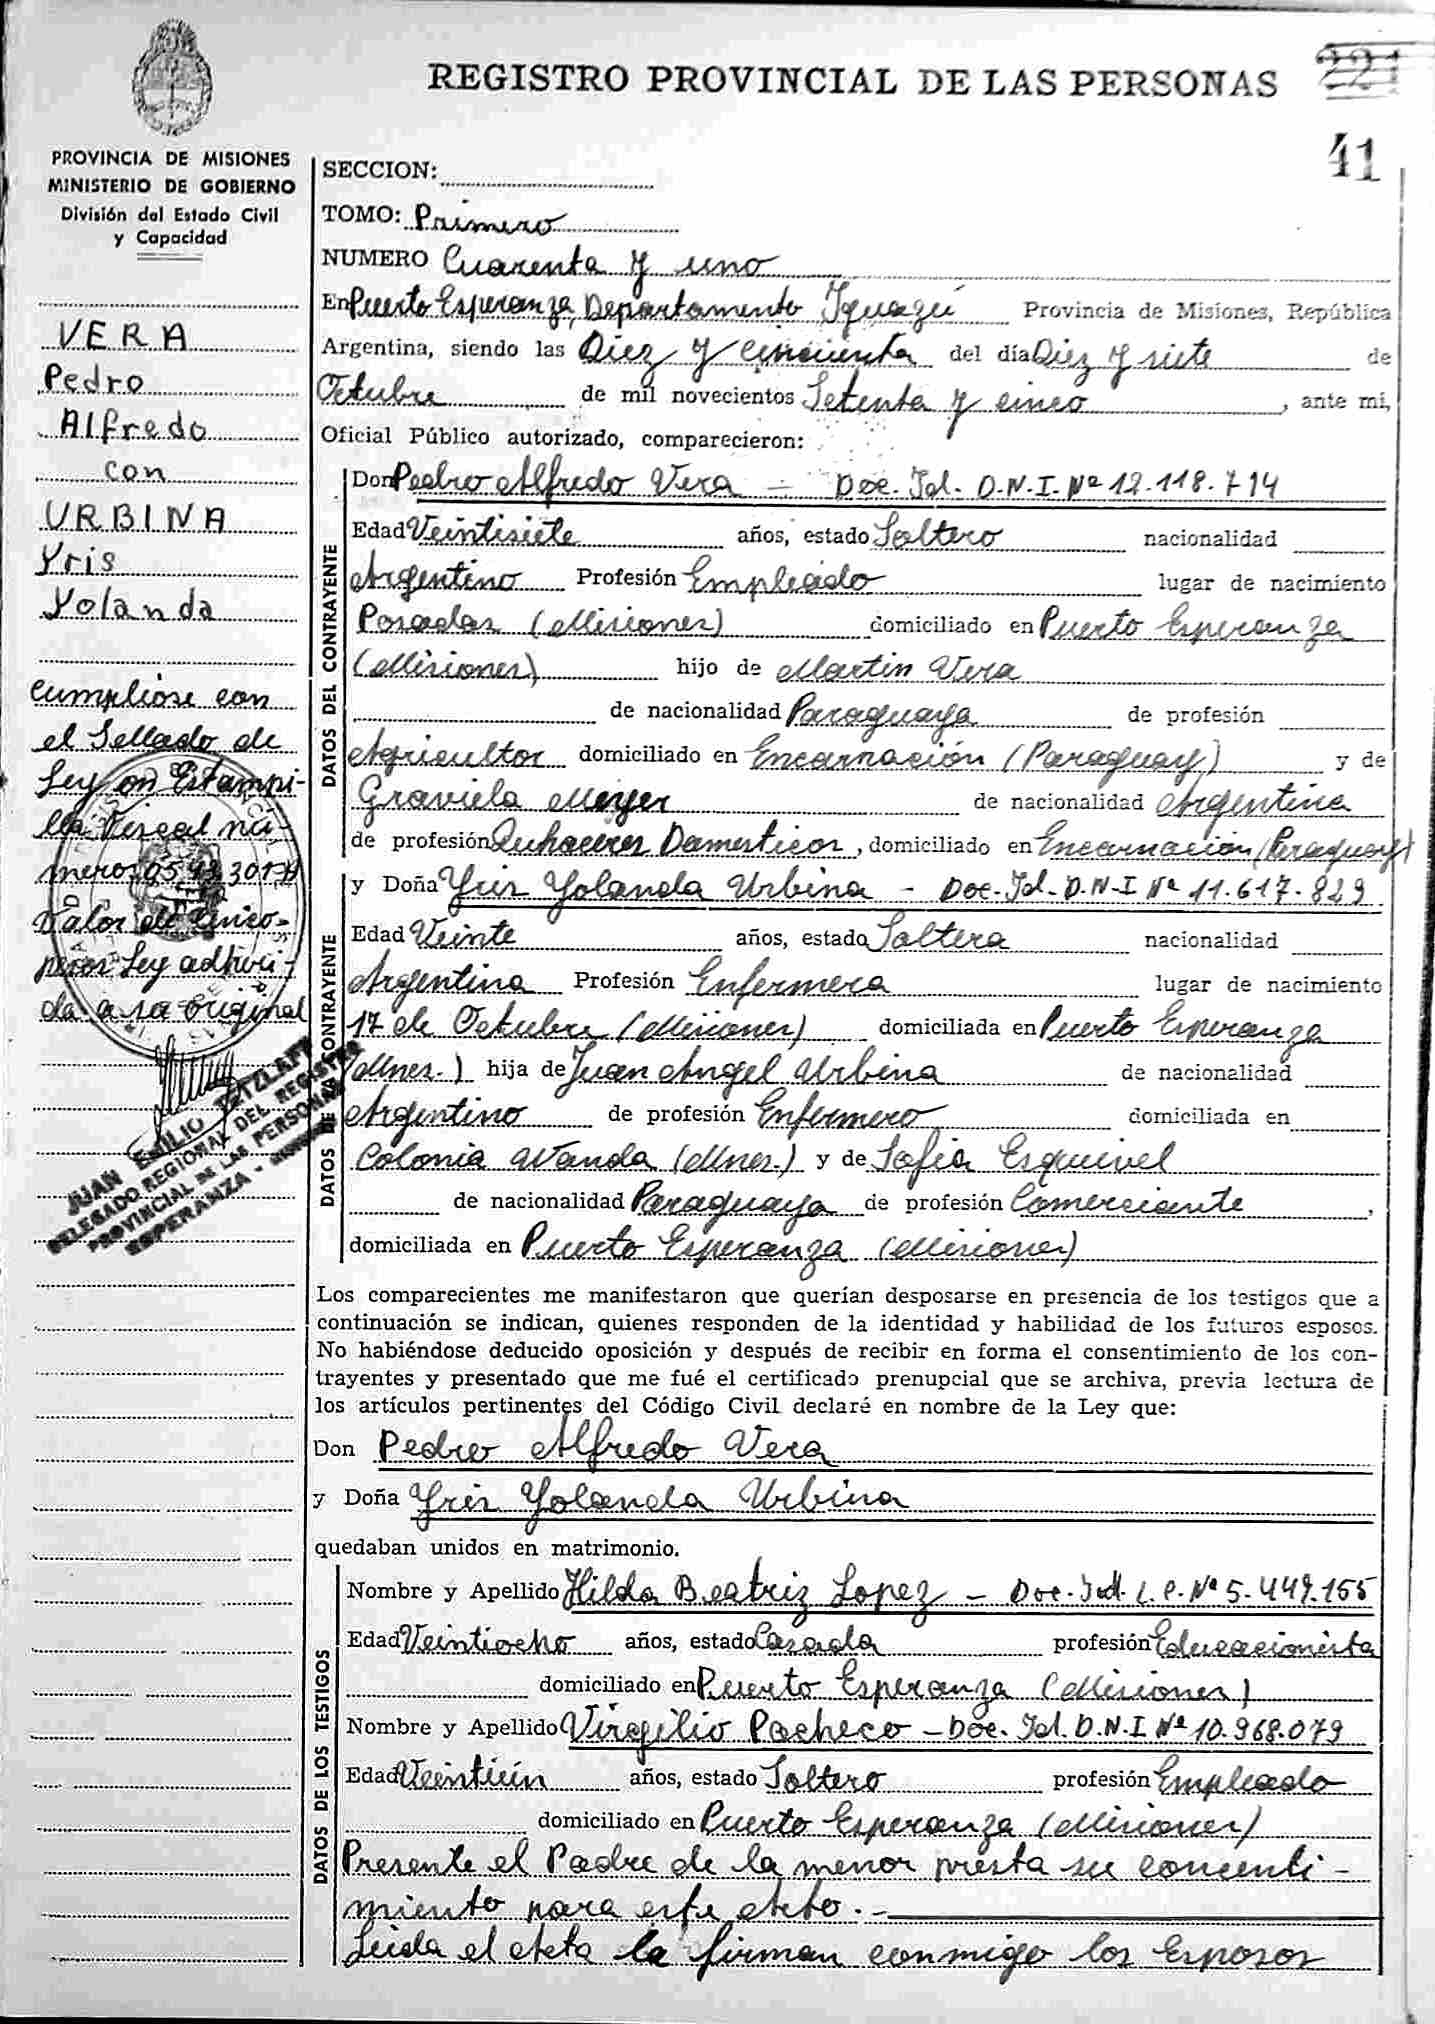 REGISTRO PROVINCIAL DE LAS PERSONAS
221
41
PROVINCIA DE MISIONES
MINISTERIO DE GOBIERNO
División del Estado Civil
y Capacidad
VERA
Pedro
Alfredo
con
URBINA
Yris
Yolanda
Cumpliose con
el Sellado de
Ley on Estampi-
lla Fiscal nú-
mero:
Valor de Cinco
pesos Ley adheri-
da a su original
JUAN EMILIO TETZLAFF
DELEGADO REGIONAL DEL REGISTRO
PROVINCIAL DE LAS PERSONAS
ESPERANZA -
SECCION:
TOMO: Primero
NUMERO Cuarenta y uno
En Puerto Esperanza, Departamento Iguazú Provincia de Misiones, República
Argentina, siendo las Diez y cincuenta del día Diez y siete de
Octubre de mil novecientos Setenta y cinco, ante mi,
Oficial Público autorizado, comparecieron:
DATOS DEL CONTRAYENTE
Don Pedro Alfredo Vera - Doc. Id. D.N.I. Nº 12.118.714
Edad Veintisiete años, estado Soltero nacionalidad
Argentino Profesión Empleado lugar de nacimiento
Posadas (Misiones) domiciliado en Puerto Esperanza
(Misiones) hijo de Martin Vera
de nacionalidad Paraguaya de profesión
Agricultor domiciliado en Encarnación (Paraguay) y de
Graviela Meyer de nacionalidad Argentina
de profesión Quhaceres Domesticos, domiciliado en Encarnación (Paraguay)
DATOS DE LA CONTRAYENTE
y Doña Yris Yolanda Urbina - Doc. Id. D.N.I Nº 11.617.829
Edad Veinte años, estado Soltera nacionalidad
Argentina Profesión Enfermera lugar de nacimiento
17 de Octubre (Misiones) domiciliada en Puerto Esperanza
(Mnes.) hija de Juan Angel Urbina de nacionalidad
Argentino de profesión Enfermero domiciliada en
Colonia Wanda (Mnes.) y de Sofia Esquivel
de nacionalidad Paraguaya de profesión Comerciante,
domiciliada en Puerto Esperanza (Misiones)
Los comparecientes me manifestaron que querían desposarse en presencia de los testigos que a
continuación se indican, quienes responden de la identidad y habilidad de los futuros esposos.
No habiéndose deducido oposición y después de recibir en forma el consentimiento de los con-
trayentes y presentado que me fué el certificado prenupcial que se archiva, previa lectura de
los artículos pertinentes del Código Civil declaré en nombre de la Ley que:
Don Pedro Alfredo Vera
y Doña Yris Yolanda Urbina
quedaban unidos en matrimonio.
DATOS DE LOS TESTIGOS
Nombre y Apellido Hilda Beatriz Lopez - Doc. Id. L.C. Nº 5.449.155
Edad Veintiocho años, estado Casada profesión Educacionista
domiciliado en Puerto Esperanza (Misiones)
Nombre y Apellido Virgilio Pacheco - Doc. Id. D.N.I Nº 10.968.079
Edad Veintiún años, estado Soltero profesión Empleado
domiciliado en Puerto Esperanza (Misiones)
Presente el Padre de la menor presta su concenti-
miento para este Acto.-
Leida el Acta la firman conmigo los Esposos